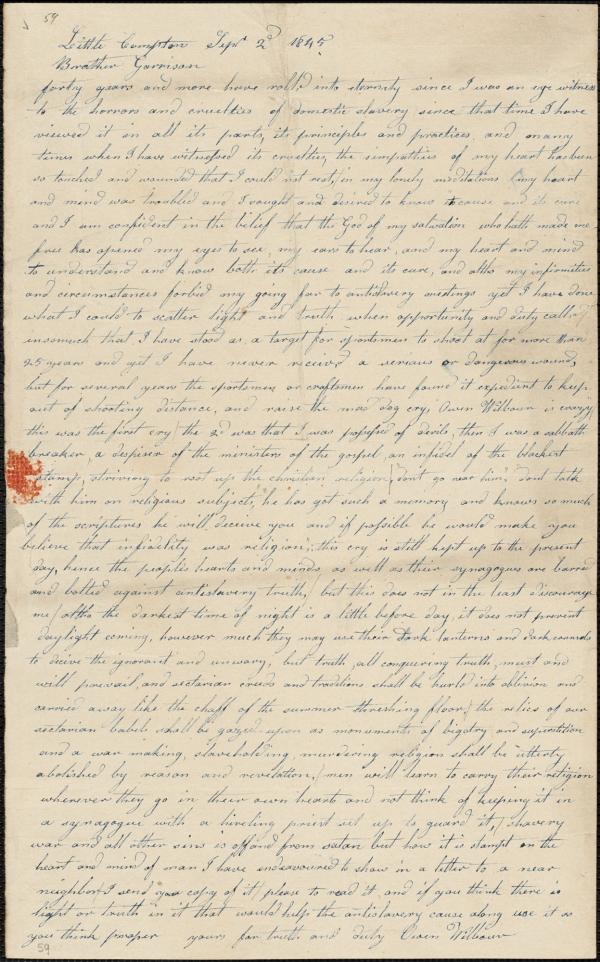 59
Little Compton Sepr 2d 1845
Brother Garrison
forty years and more have roll'd into eternity since I was an eye witness
to the horrors and cruelties of domestic slavery since that time I have
viewed it in all its parts, its principles and practices, and many
times when I have witnessed its cruelties, the simpathies of my heart has been
so touched and wounded that I could not rest, in my lonely meditations my heart
and mind was troubled and I sought and desired to know its cause and its cure
and I am confident in the belief that the God of my salvation who hath made me
free has opened my eyes to see, my ears to hear, and my heart and mind
to understand and know both its cause and its cure, and altho my infirmities
and circumstances forbid my going far to antislavery meetings yet I have done
what I could to scatter light and truth when opportunity and duty called
insomuch that I have stood as a target for sportsmen to shoot at for more than
25 years and yet I have never received a serious or dangerous wound,
but for several years the sportsmen or craftsmen have found it expedient to keep
out of shooting distance, and raise the mad dog cry, Owen Wilbour is crazy
this was the first cry the 2d was that I was possessed of devils, then I was a sabbath
breaker, a despiser of the ministers of the gospel an infidel of the blackest
stamp, striving to root up the christian religion, "don't go near him," dont talk
with him on religious subjects, he has got such a memory and knows so much
of the scriptures he will deceive you and if possible he would make you
believe that infidelity was religion", this cry is still kept up to the present
day, hence the peoples hearts and minds as well as their synagogues are barred
and bolted against antislavery truth, but this does not in the least discourage
me altho the darkest time of night is a little before day, it does not prevent
daylight coming, however much they may use their dark lanterns and dark
to decive the ignorant and unwary, but truth, all conquering truth, must and
will prevail, and sectarian creeds and traditions shall be hurld into oblivion and
carried away like the chaff of the summer threshing floor, the relics of our
sectarian babels shall be gazed upon as monuments of bigotry and superstition
and a war making, slaveholding, murdering religion shall be utterly
abolished by reason and revelation, men will learn to carry their religion
wherever they go in their own hearts and not think of keeping it in
a synagogue with a hireling priest set up to guard it, slavery
war and all other sins is offend from satan but how it is stampt on the
heart and mind of man I have endeavoured to show in a letter to a near
neighbor I send you copy of it please to read it, and if you think there is
light or truth in it that would help the antislavery cause along use it as
you think proper yours for truth and duty Owen Wilbour
59